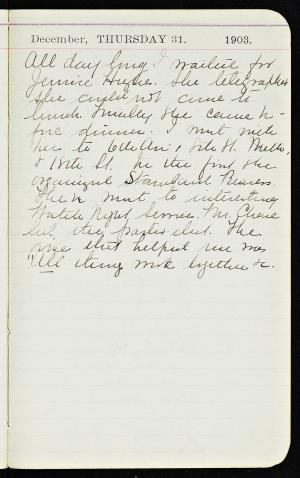 December, THURSDAY 31. 1903.
All day long I waited for
Jennie Hughe. She telegraphed
she could not come to
lunch. Finally she came be-
fore dinner. I went with
her to
& 18th St. In the first she
organized Standard Bearers.
Then went to interesting
Watch Night Service. Mr. Chase
led, the pastor
verse that helped me was
"All things work together &c.